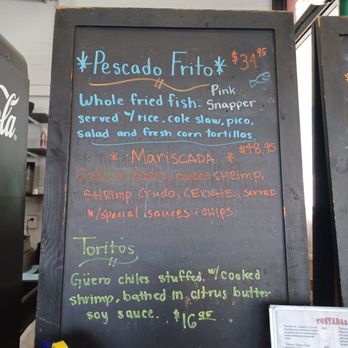 *Pescado Frito* $34.95
Pink
Whole fried fish. Snapper
served w/rice, cole slaw, pico,
salad and fresh corn tortillos.
* Mariscada * $48.95
cooked shrimp,
shrimp crudo, ceviche, served
w/special sauces + chips
Toritos
Güero chiles stuffed w/cooked
shrimp, bathed in citrus butter
soy sauce. $16.95
TOSTADAS